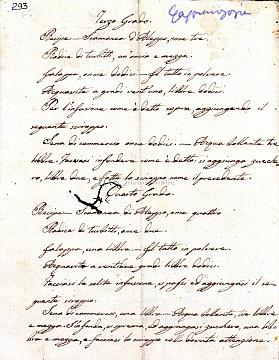 293
Terzo Grado.
Recipe — Scamonea d'Aleppo, once tre.
Radice di turbitti, un'oncia e mezza.
Jalappa, oncie dodici — Il tutto in polvere.
Acquavite a gradi ventuno, libbre dodici.
Per l'infusione come è detto sopra, aggiungendo il
seguente siroppo:
Sena di commercio once dodici — Acqua bollente tre
libbre. Facciasi infondere come è detto, si aggiunga zucche-
ro, libbre due, e fatto lo siroppo come il precedente.
Quarto Grado.
Recipe — Scamonea di Aleppo, once quattro
Radice di turbitti, once due.
Jalappa, una libbra — Il tutto in polvere.
Acquavite a ventidue gradi libbre dodici.
Facciasi la solita infusione, si passi ed aggiungasi il se-
guente siroppo:
Sena di commercio, una libbra — Acqua bollente, tre libbre
e mezza. S'infonda, si sprema, ed aggiungasi zucchero, una lib-
bra e mezza, e facciasi lo siroppo colla dovuta attenzione.